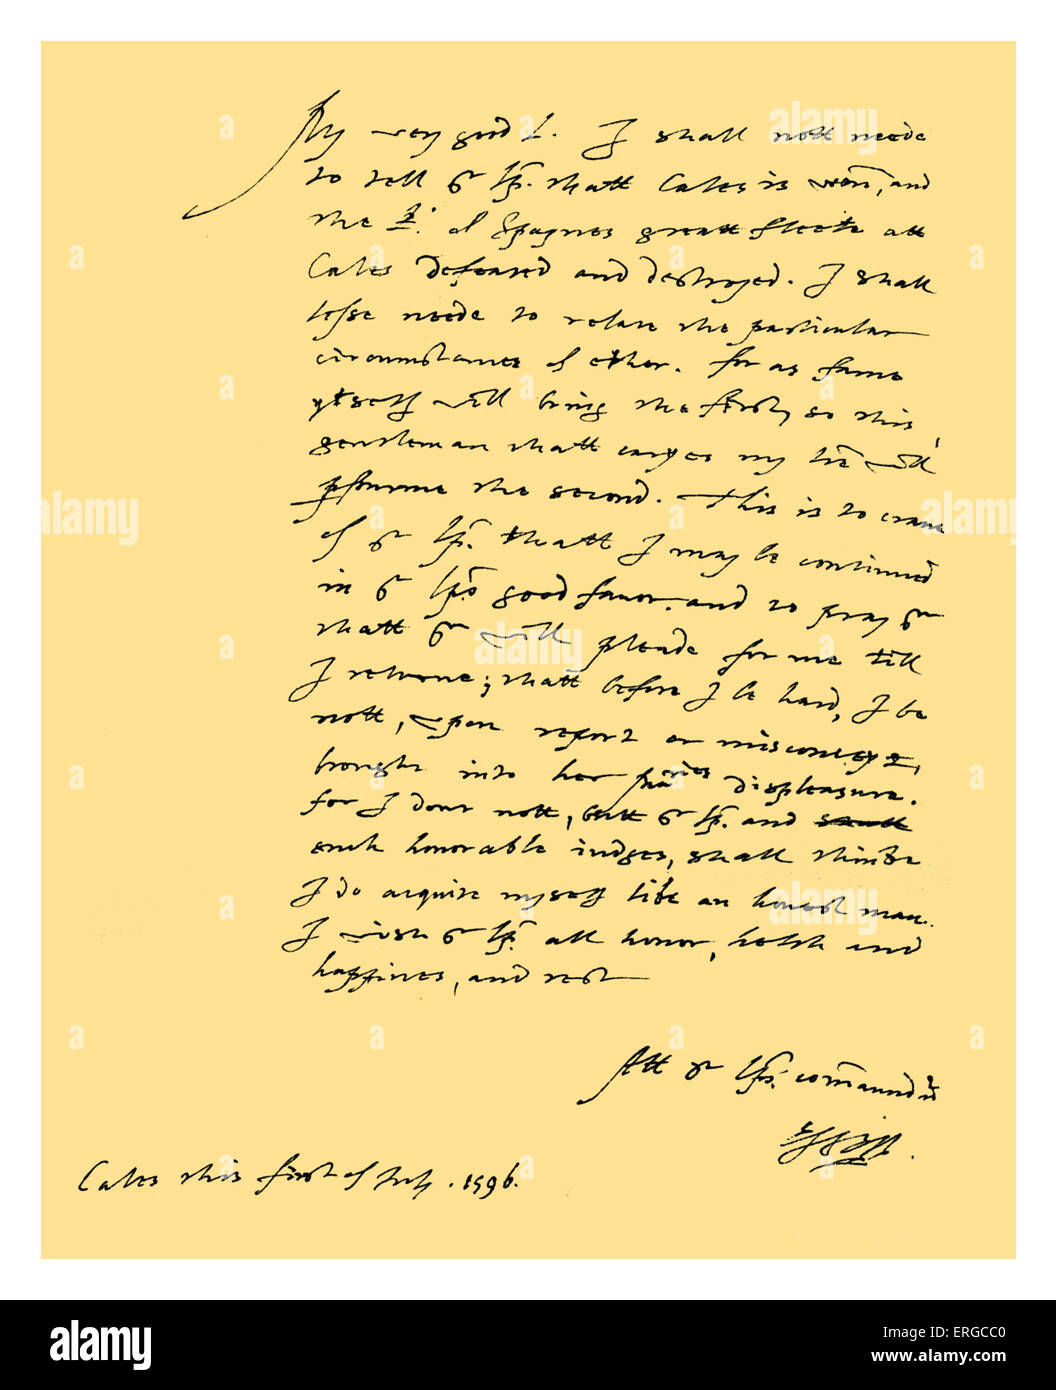 My very good L. I shall nott neede
to tell yor Lp. thatt Cales is wonn, and
the K. of Spaynes great fleete att
Cales defeated and destroyed. I shall
lesse neede to relate the particular
circumstances of ether. for as fame
ytself will bring the first, so this
gentleman thatt caryes my lre will
performe the second. This is to crave
of yor Lp. thatt I may be continued
in yor Lps good favor. and to pray yor
thatt yor will pleade for me till
I returne; thatt before I be hard, I be
nott, upon report or misconceyt,
brought into her maties displeasure.
for I dout nott, butt yor Lp. and
such honorable iudges, shall thinke
I do acquite myself like an honest man.
I wish yor Lp. all honor, helth and
happines, and rest
Att yor Lps. commaundmt
Cales this first of July. 1596.
alamy
Image ID: ERGCC0
www.alamy.com